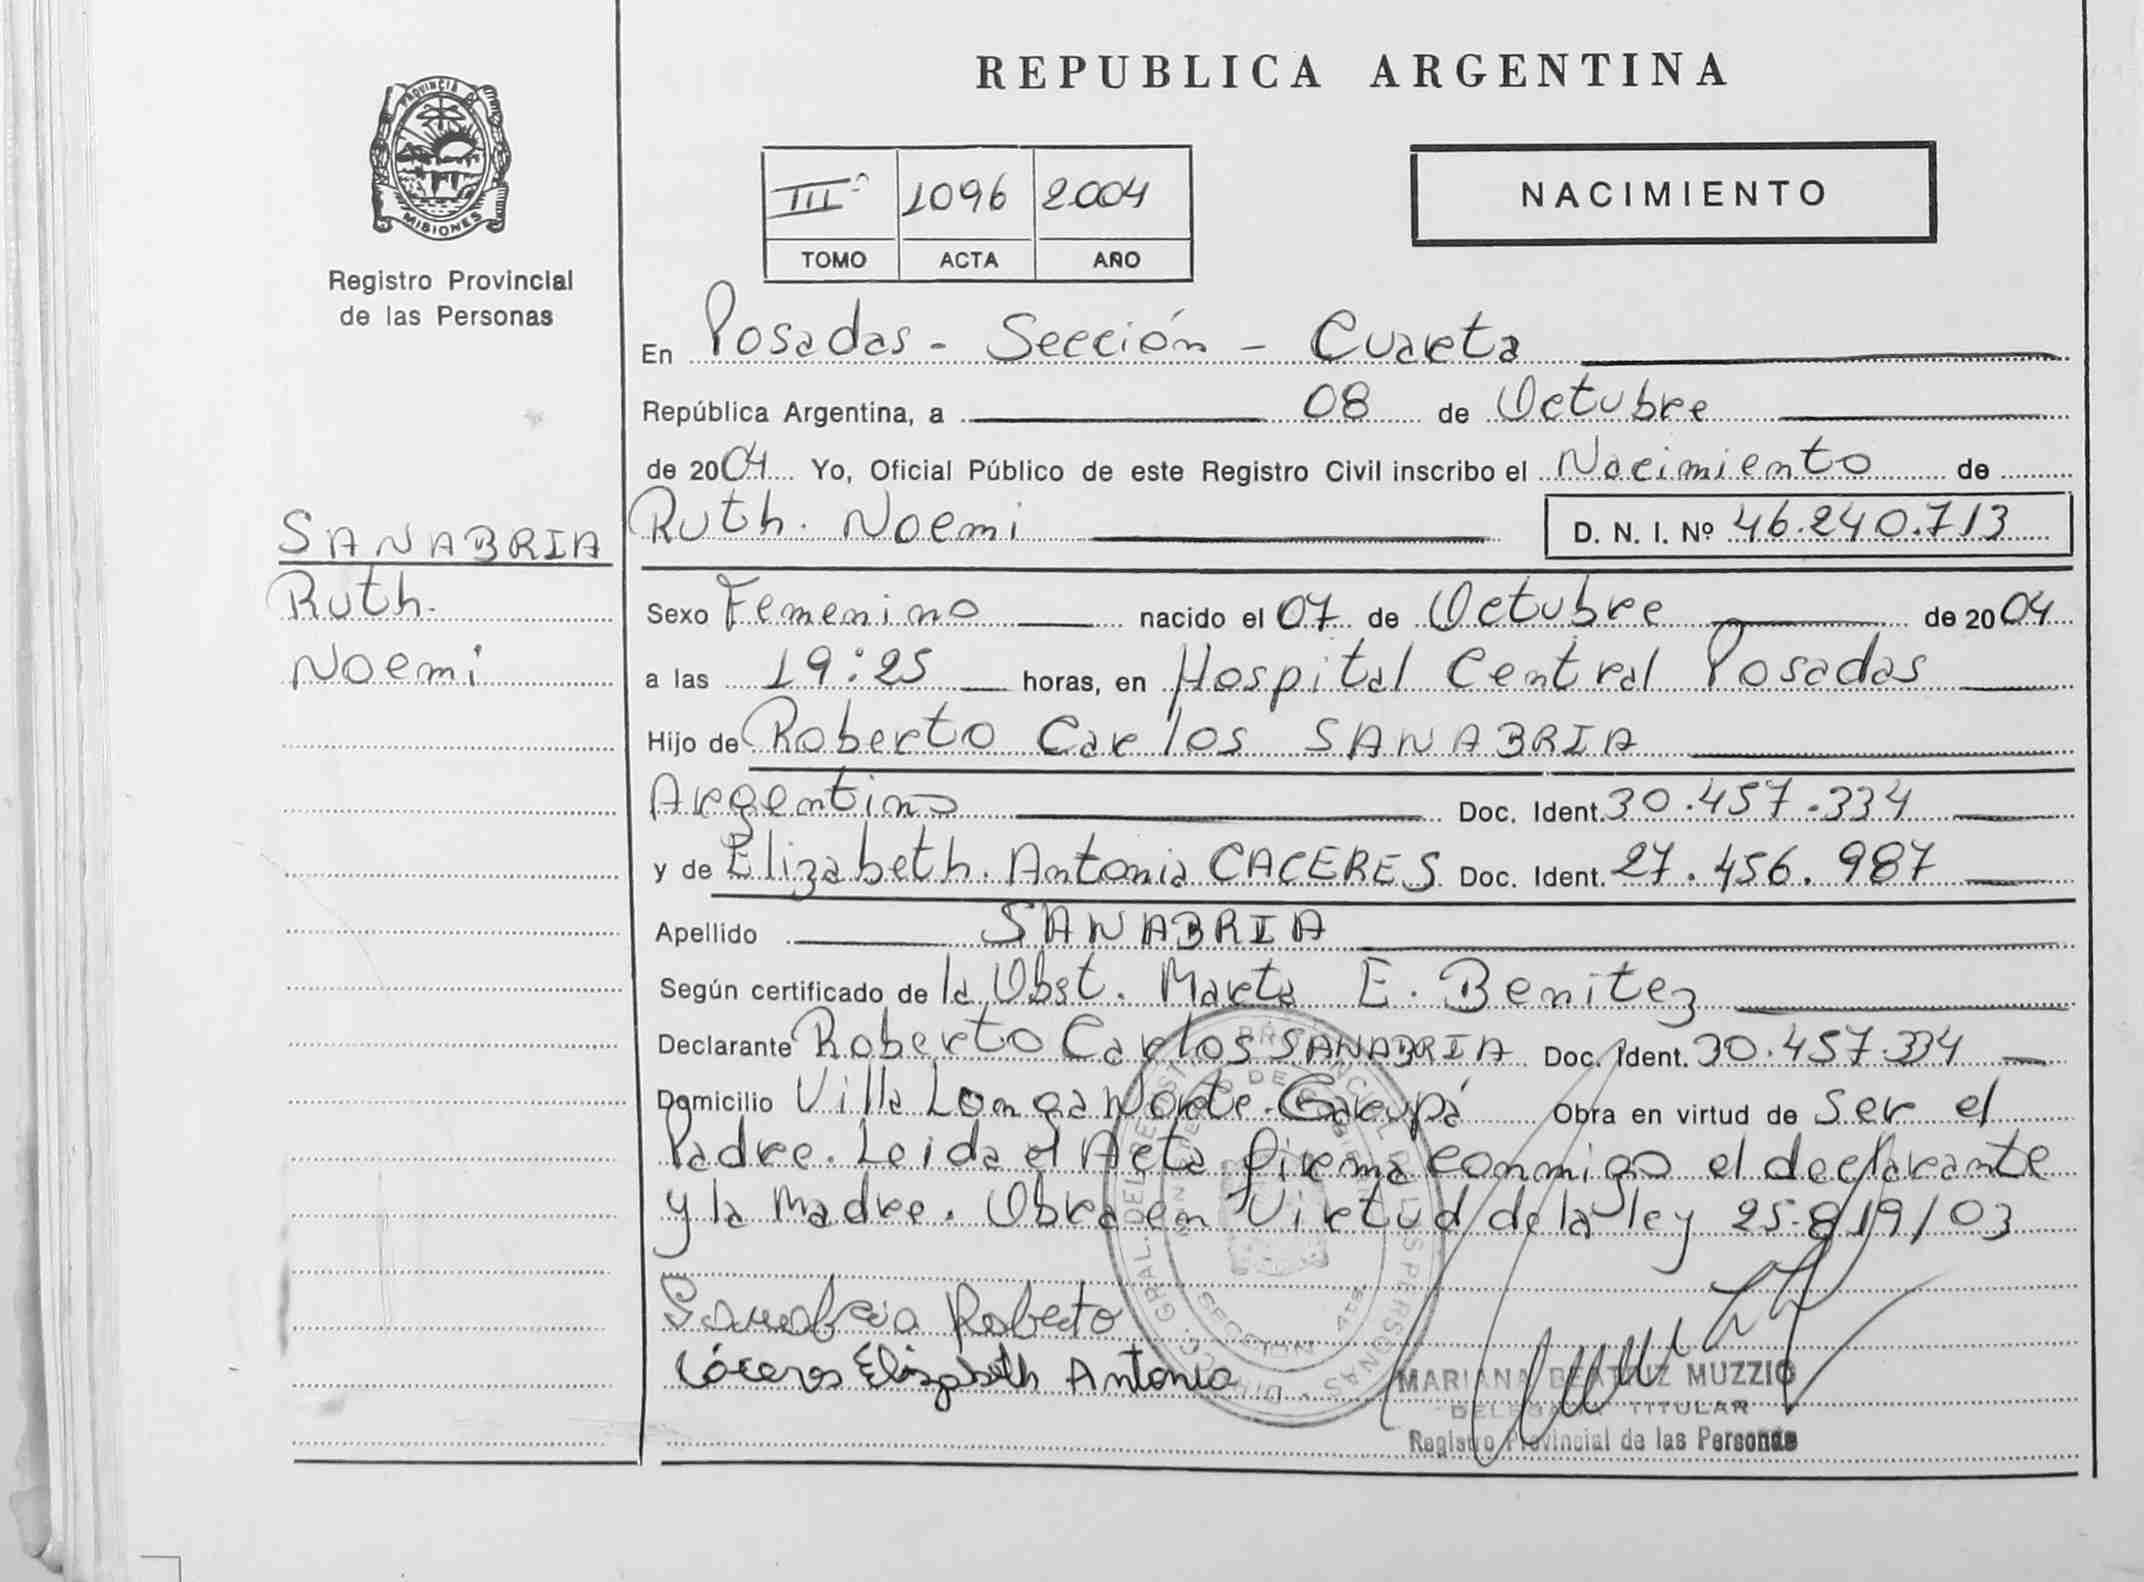 REPUBLICA ARGENTINA
PROVINCIA DE
MISIONES
Registro Provincial
de las Personas
III 1096 2004
TOMO ACTA AÑO
NACIMIENTO
En Posadas - Sección - Cuarta
República Argentina, a 08 de Octubre
de 2004 Yo, Oficial Público de este Registro Civil inscribo el Nacimiento de
SANABRIA
Ruth.
Noemi
Ruth. Noemi D. N. I. Nº 46.240.713
Sexo Femenino nacido el 07 de Octubre de 2004
a las 19:25 horas, en Hospital Central Posadas
Hijo de Roberto Carlos SANABRIA
Argentino Doc. Ident. 30.457.334
y de Elizabeth. Antonia CACERES Doc. Ident. 27.456.987
Apellido SANABRIA
Según certificado de la Obst. Marta E. Benitez
Declarante Roberto Carlos SANABRIA Doc. Ident. 30.457.334
Domicilio Villa Longa Norte. Garupá Obra en virtud de ser el
Padre. Leida el Acta firma conmigo el declarante
y la Madre. Obra en Virtud de la ley 25.819/03
Sanabria Roberto
Cáceres Elizabeth Antonia
MARIANA BEATRIZ MUZZIO
DELEGADA TITULAR
Registro Provincial de las Personas